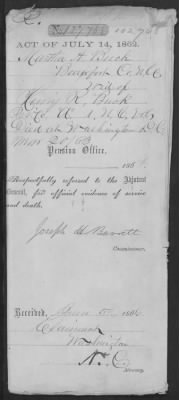 ACT OF JULY 14, 1862.
Martha A. Buck
Beaufort Co. N.C.
Wid. of
Henry R. Buck
1, N.C. Vol
Died at Washington N.C.
Pension Office,
Respectfully referred to the Adjutant
General, for official evidence of service
and death.
Joseph H. Barrett
Commissioner.
Received,
Claimant
Washington
N. C.
Attorney.